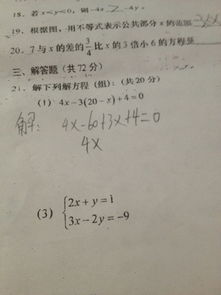 18. 若x<y<0, 则-4x > -4y.
19. 根据图, 用不等式表示公共部分x的范围
20. 7与x的差的3/4比x的3倍小6的方程是
三、解答题 (共72分)
21. 解下列解方程 (组): (共20分)
(1) 4x-3(20-x)+4=0
解: 4x-60+3x+4=0
4x
(3) {2x+y=1
3x-2y=-9